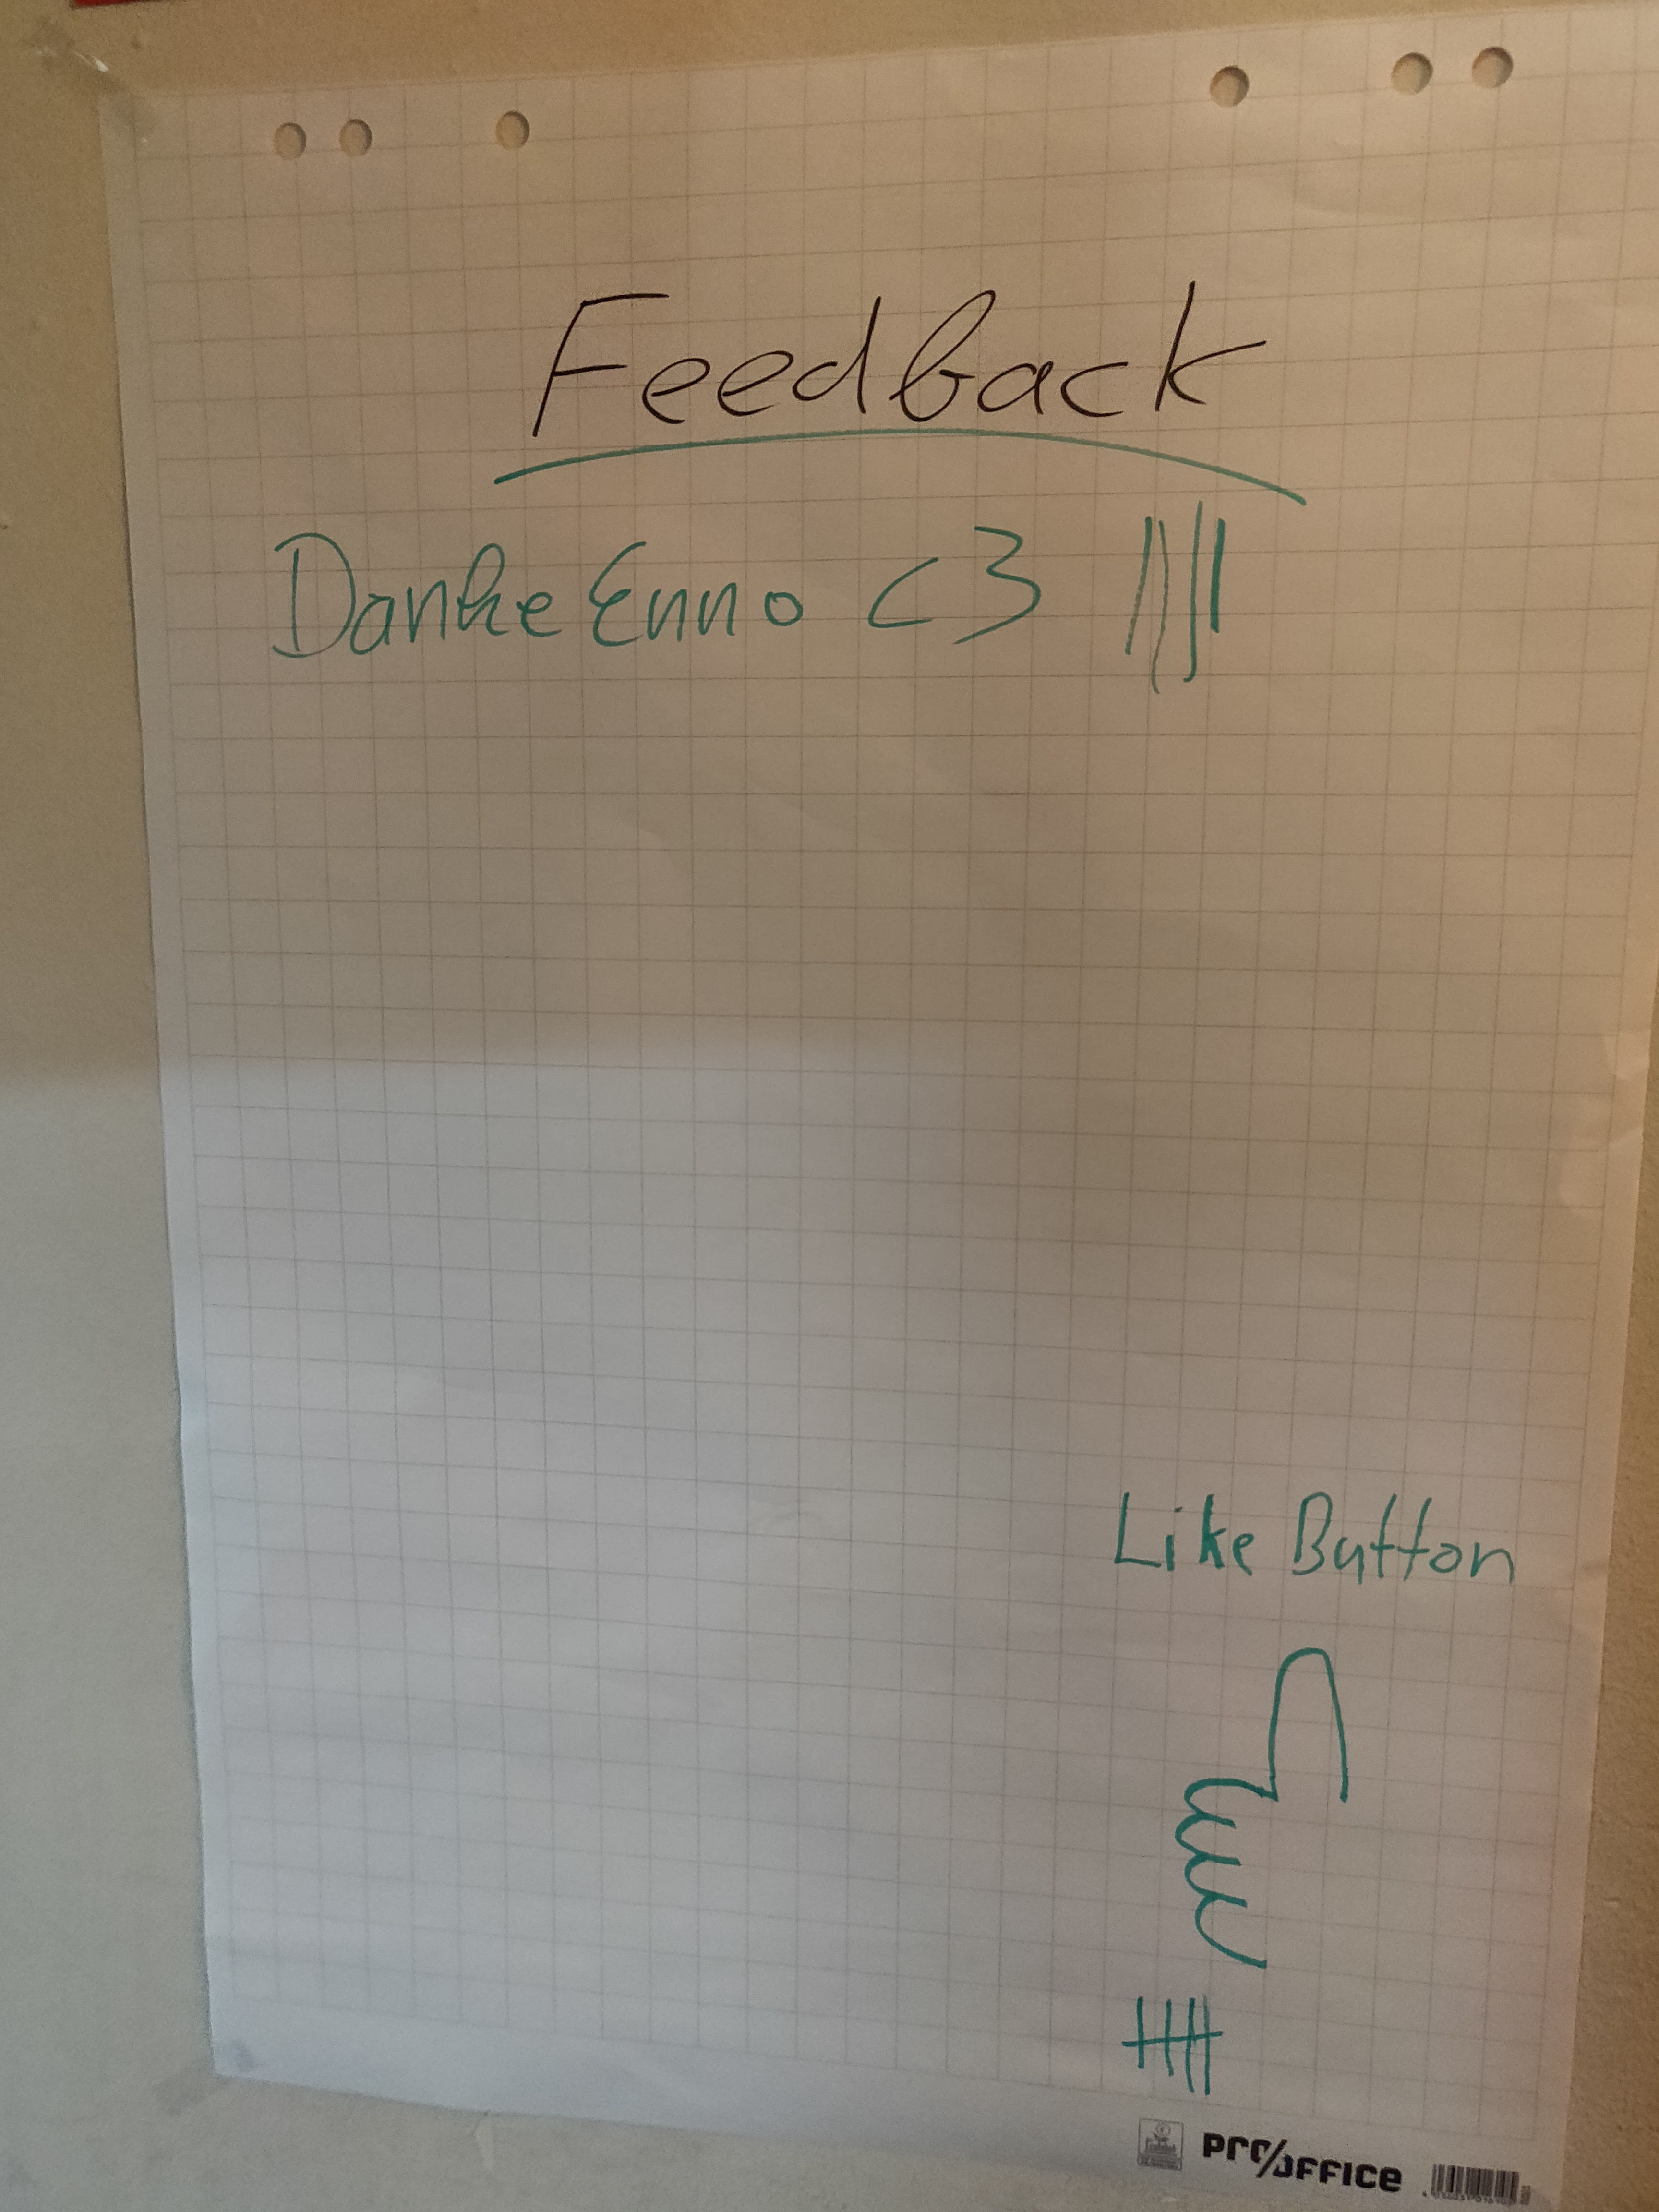 Feedback
Danke Enno <3 ||||
Like Button
PRO/OFFICE